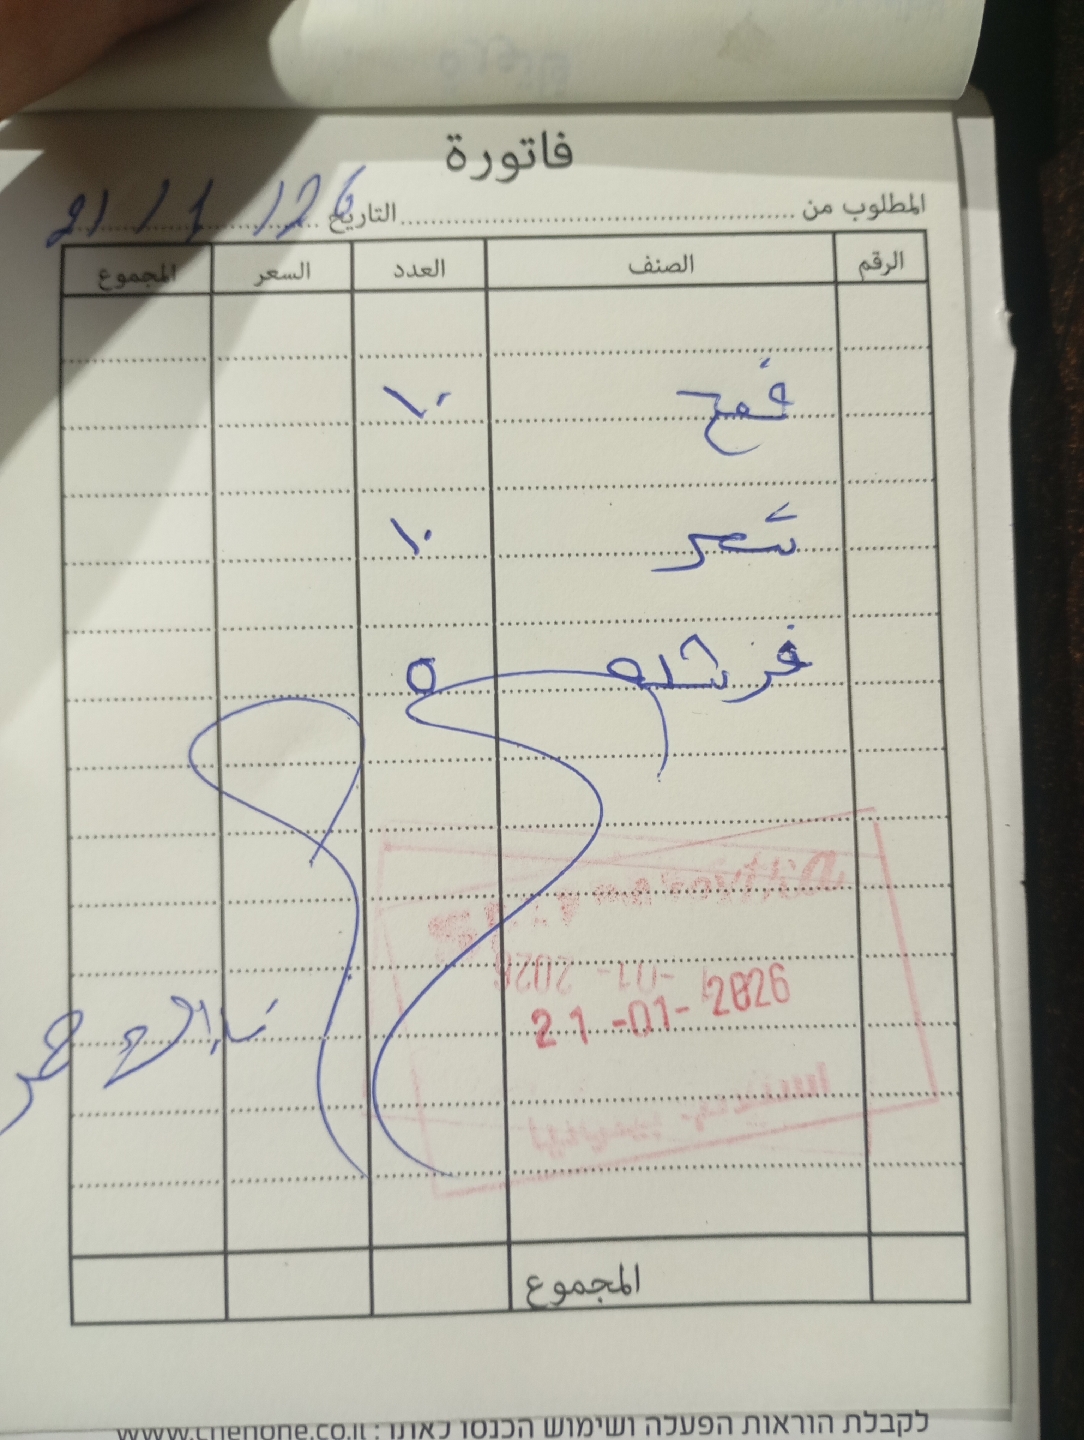 فاتورة
المطلوب من ........ التاريخ 21/1/26
الرقم الصنف العدد السعر المجموع
قمح ١٠
شعر ١٠
فرشه ٥
21-01-2026
المجموع
לקבלת הוראות הפעלה ושימוש הכנסו לאתר: www.chenone.co.il